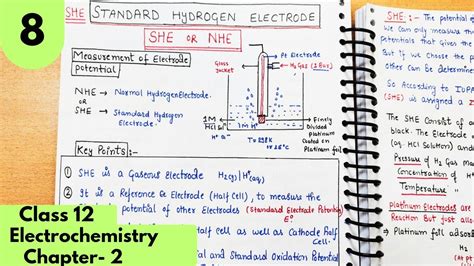 8
SHE
STANDARD HYDROGEN ELECTRODE
SHE OR NHE
Measurement of Electrode
potential
NHE → Normal Hydrogen Electrode.
OR
SHE → Standard Hydrogen
Electrode.
Pt Electrode
Glass
Jacket
H₂ Gas (1 Bar)
1M
HCl
1M H⁺
Finely
Divided
Platinum
Coated on
Platinum foil
T = 298K
or 25°C
Key Points:-
① SHE is a Gaseous Electrode H₂(g)|H⁺(aq)
② It is a Reference Electrode (Half Cell), to measure the
potential of other Electrodes (Standard Electrode Potential)
E°
Half cell as well as Cathode Half
Cell.
and Standard Oxidation Potential
SHE :- The potential
We can only measure
potentials that gives the
But if we choose the p
other can be determined
So According to IUPA
(SHE) is assigned a
The SHE Consist of
black. The Electrode
HCl Solution) and
Pressure of H₂ Gas
Concentration of H⁺
Temperature
Platinum Electrodes are
Reaction But just
Platinum foil adsorbs
Class 12
Electrochemistry
Chapter- 2